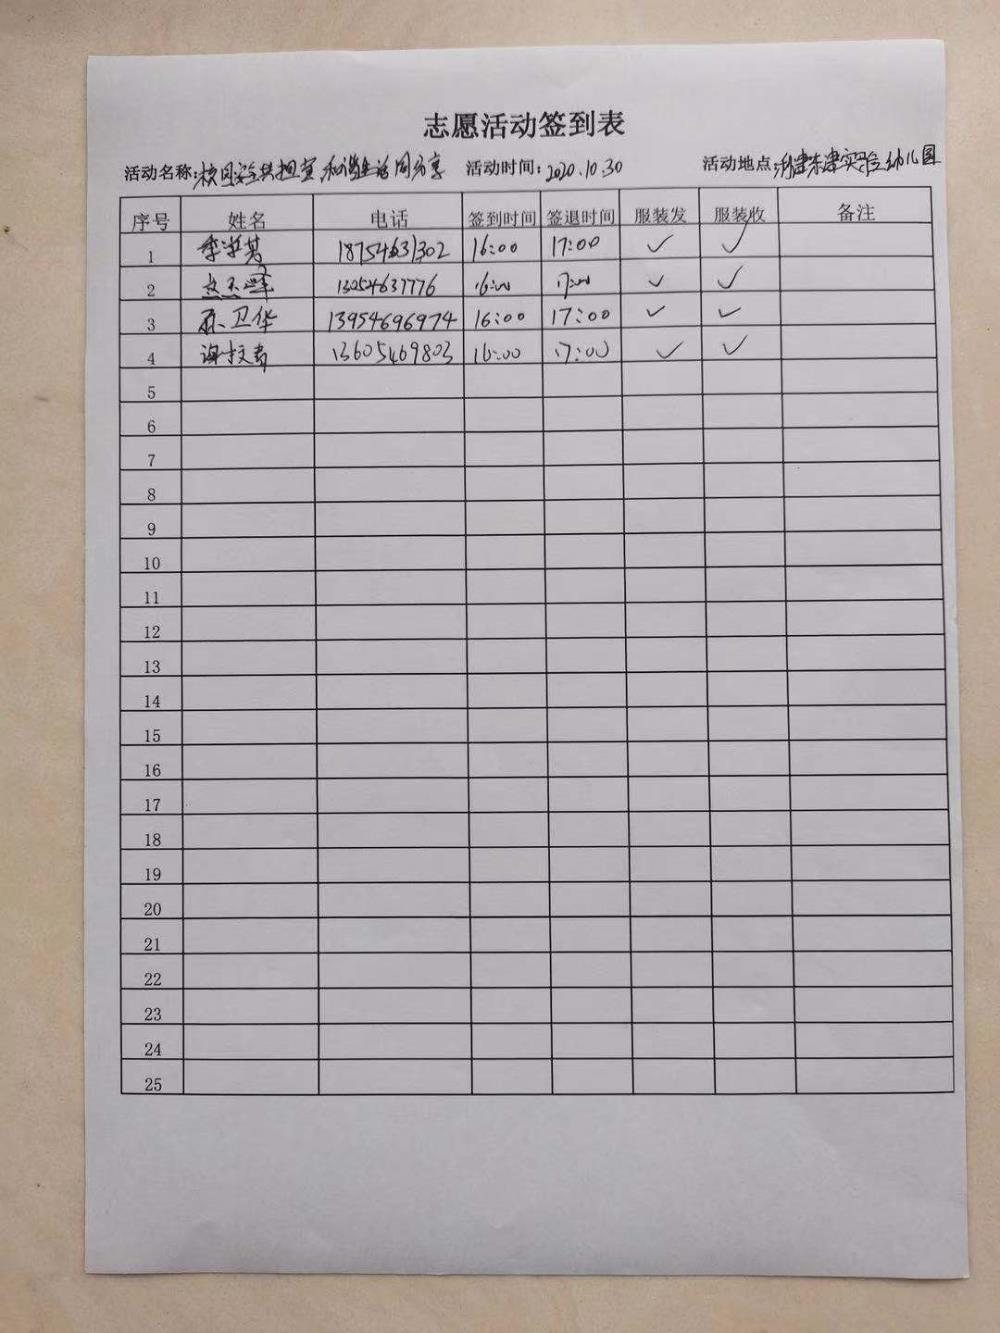 志愿活动签到表
活动名称:校园安全共担当 和谐生活同分享 活动时间:2020.10.30 活动地点:利津东津实验幼儿园
序号 姓名 电话 签到时间 签退时间 服装发 服装收 备注
1 李洪芳 18754631302 16:00 17:00 ✓ ✓
2 13254637776 16:00 17:00 ✓ ✓
3 孙卫华 13954696974 16:00 17:00 ✓ ✓
4 13605469803 16:00 17:00 ✓ ✓
5
6
7
8
9
10
11
12
13
14
15
16
17
18
19
20
21
22
23
24
25